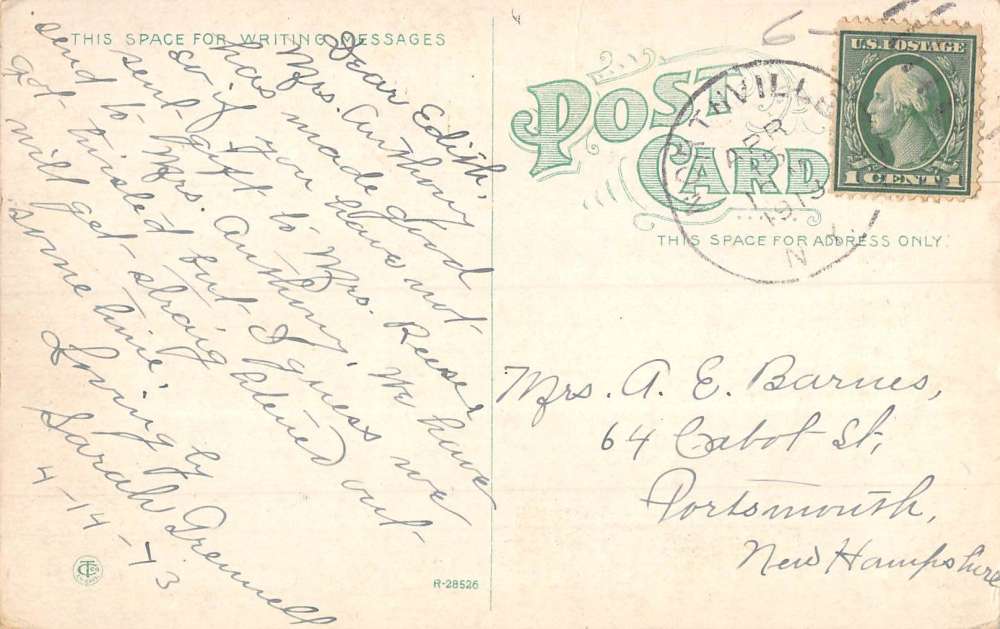 THIS SPACE FOR WRITING MESSAGES
Dear Edith,
Mrs. Anthony
has made good
so if you have not
sent gift to Mrs. Reese
send to Mrs. Anthony. We have
got twisted but I guess we
will get straightened out
some time.
Lovingly
Sarah
4-14-13
R-28526
POST CARD
THIS SPACE FOR ADDRESS ONLY.
APR
1913
N.
U.S. POSTAGE
1 CENT 1
Mrs. A. E. Barnes,
64 Cabot St,
Portsmouth,
New Hampshire